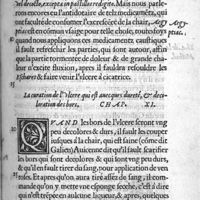 uel druelle, excepta in pastilles redigée. Mais nous parle-
rons encores en l'antidotere de telz medicamētz, qui
ont faculté de consumer l'excrescēce de la chair, Aegy-
ptiac est en cōmun vsage pour telle chose, toutesfoys
quand nous appliquons ces medicamētz, cautiue qu'il
fault refreschir les parties, qui sont autour, affin
que la partie tormentée de doleur & de grande cha-
leur n'excite fluxion, apres il fauldra resouldre les
Eschares & faire venir l'vlcere à cicatrice.
La curation de l'vlcere qui est auecques dureté, & deco-
loration des bors. CHAP. XI.
QVAND les bors de l'vlcere seront vng
peu decolores & durs, il fault les coupper
iusques à la chair, qui est saine (cōme dit
Galien) Auicenne dit qu'il fault scarifier
les bors qui sont decolorés & qui sont vng peu durs,
& qu'il en fault tirer du sang, pour application de ven-
toses. Et apres qu'on aura tiré assez de sang, il com-
mande qu'on y mette vne esponge seche, c'est à dire